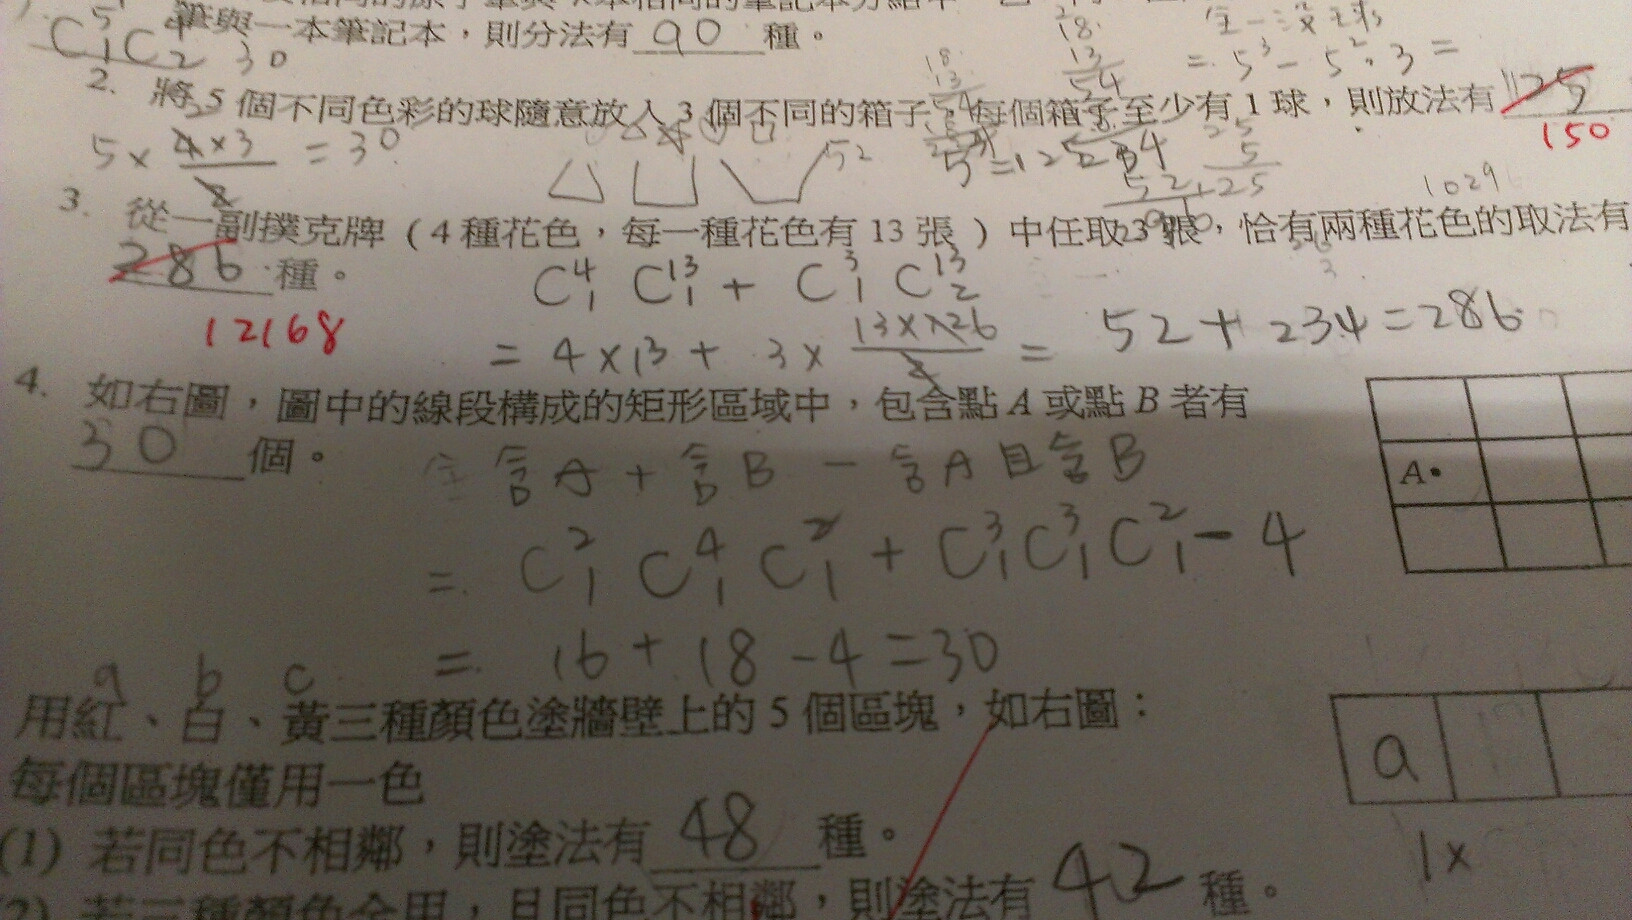 筆與一本筆記本，則分法有 90 種。
30
= 5³ - 5²·3 =
2. 將 5 個不同色彩的球隨意放入 3 個不同的箱子，每個箱子至少有 1 球，則放法有 125
150
5 × 4×3/2 = 30
3. 從一副撲克牌（4 種花色，每一種花色有 13 張）中任取 3 張，恰有兩種花色的取法有
286 種。
12168
C⁴₁ C¹³₁ + C³₁ C¹³₂
= 4 × 13 + 3 ×
= 52 + 234 = 286
4. 如右圖，圖中的線段構成的矩形區域中，包含點 A 或點 B 者有
30 個。
含 A + 含 B - 含 A 且含 B
A
= C²₁ C⁴₁ C²₁ + C³₁ C³₁ C²₁ - 4
= 16 + 18 - 4 = 30
a b c
用紅、白、黃三種顏色塗牆壁上的 5 個區塊，如右圖：
每個區塊僅用一色
a
(1) 若同色不相鄰，則塗法有 48 種。
1×
(2) 若三種顏色全用，且同色不相鄰，則塗法有 42 種。